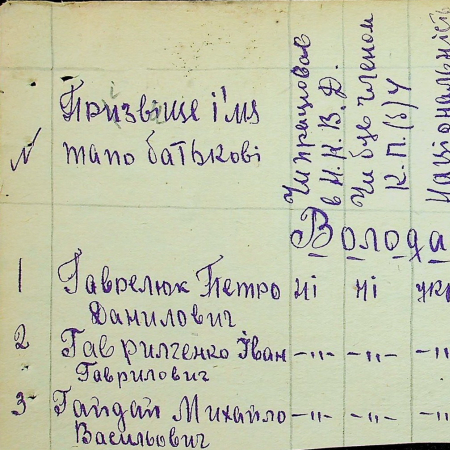 N
Призвіще і'мя
тапо батькові
Чи працював
в Н.К.В.Д.
Чи був членом
К.П.(б)У
Національність
Волода
1 Гаврелюк Петро ні ні укр
Данилович
2 Гаврилченко Іван -"- -"- -"-
Гаврилович
3 Гайдай Михайло -"- -"- -"-
Васильович